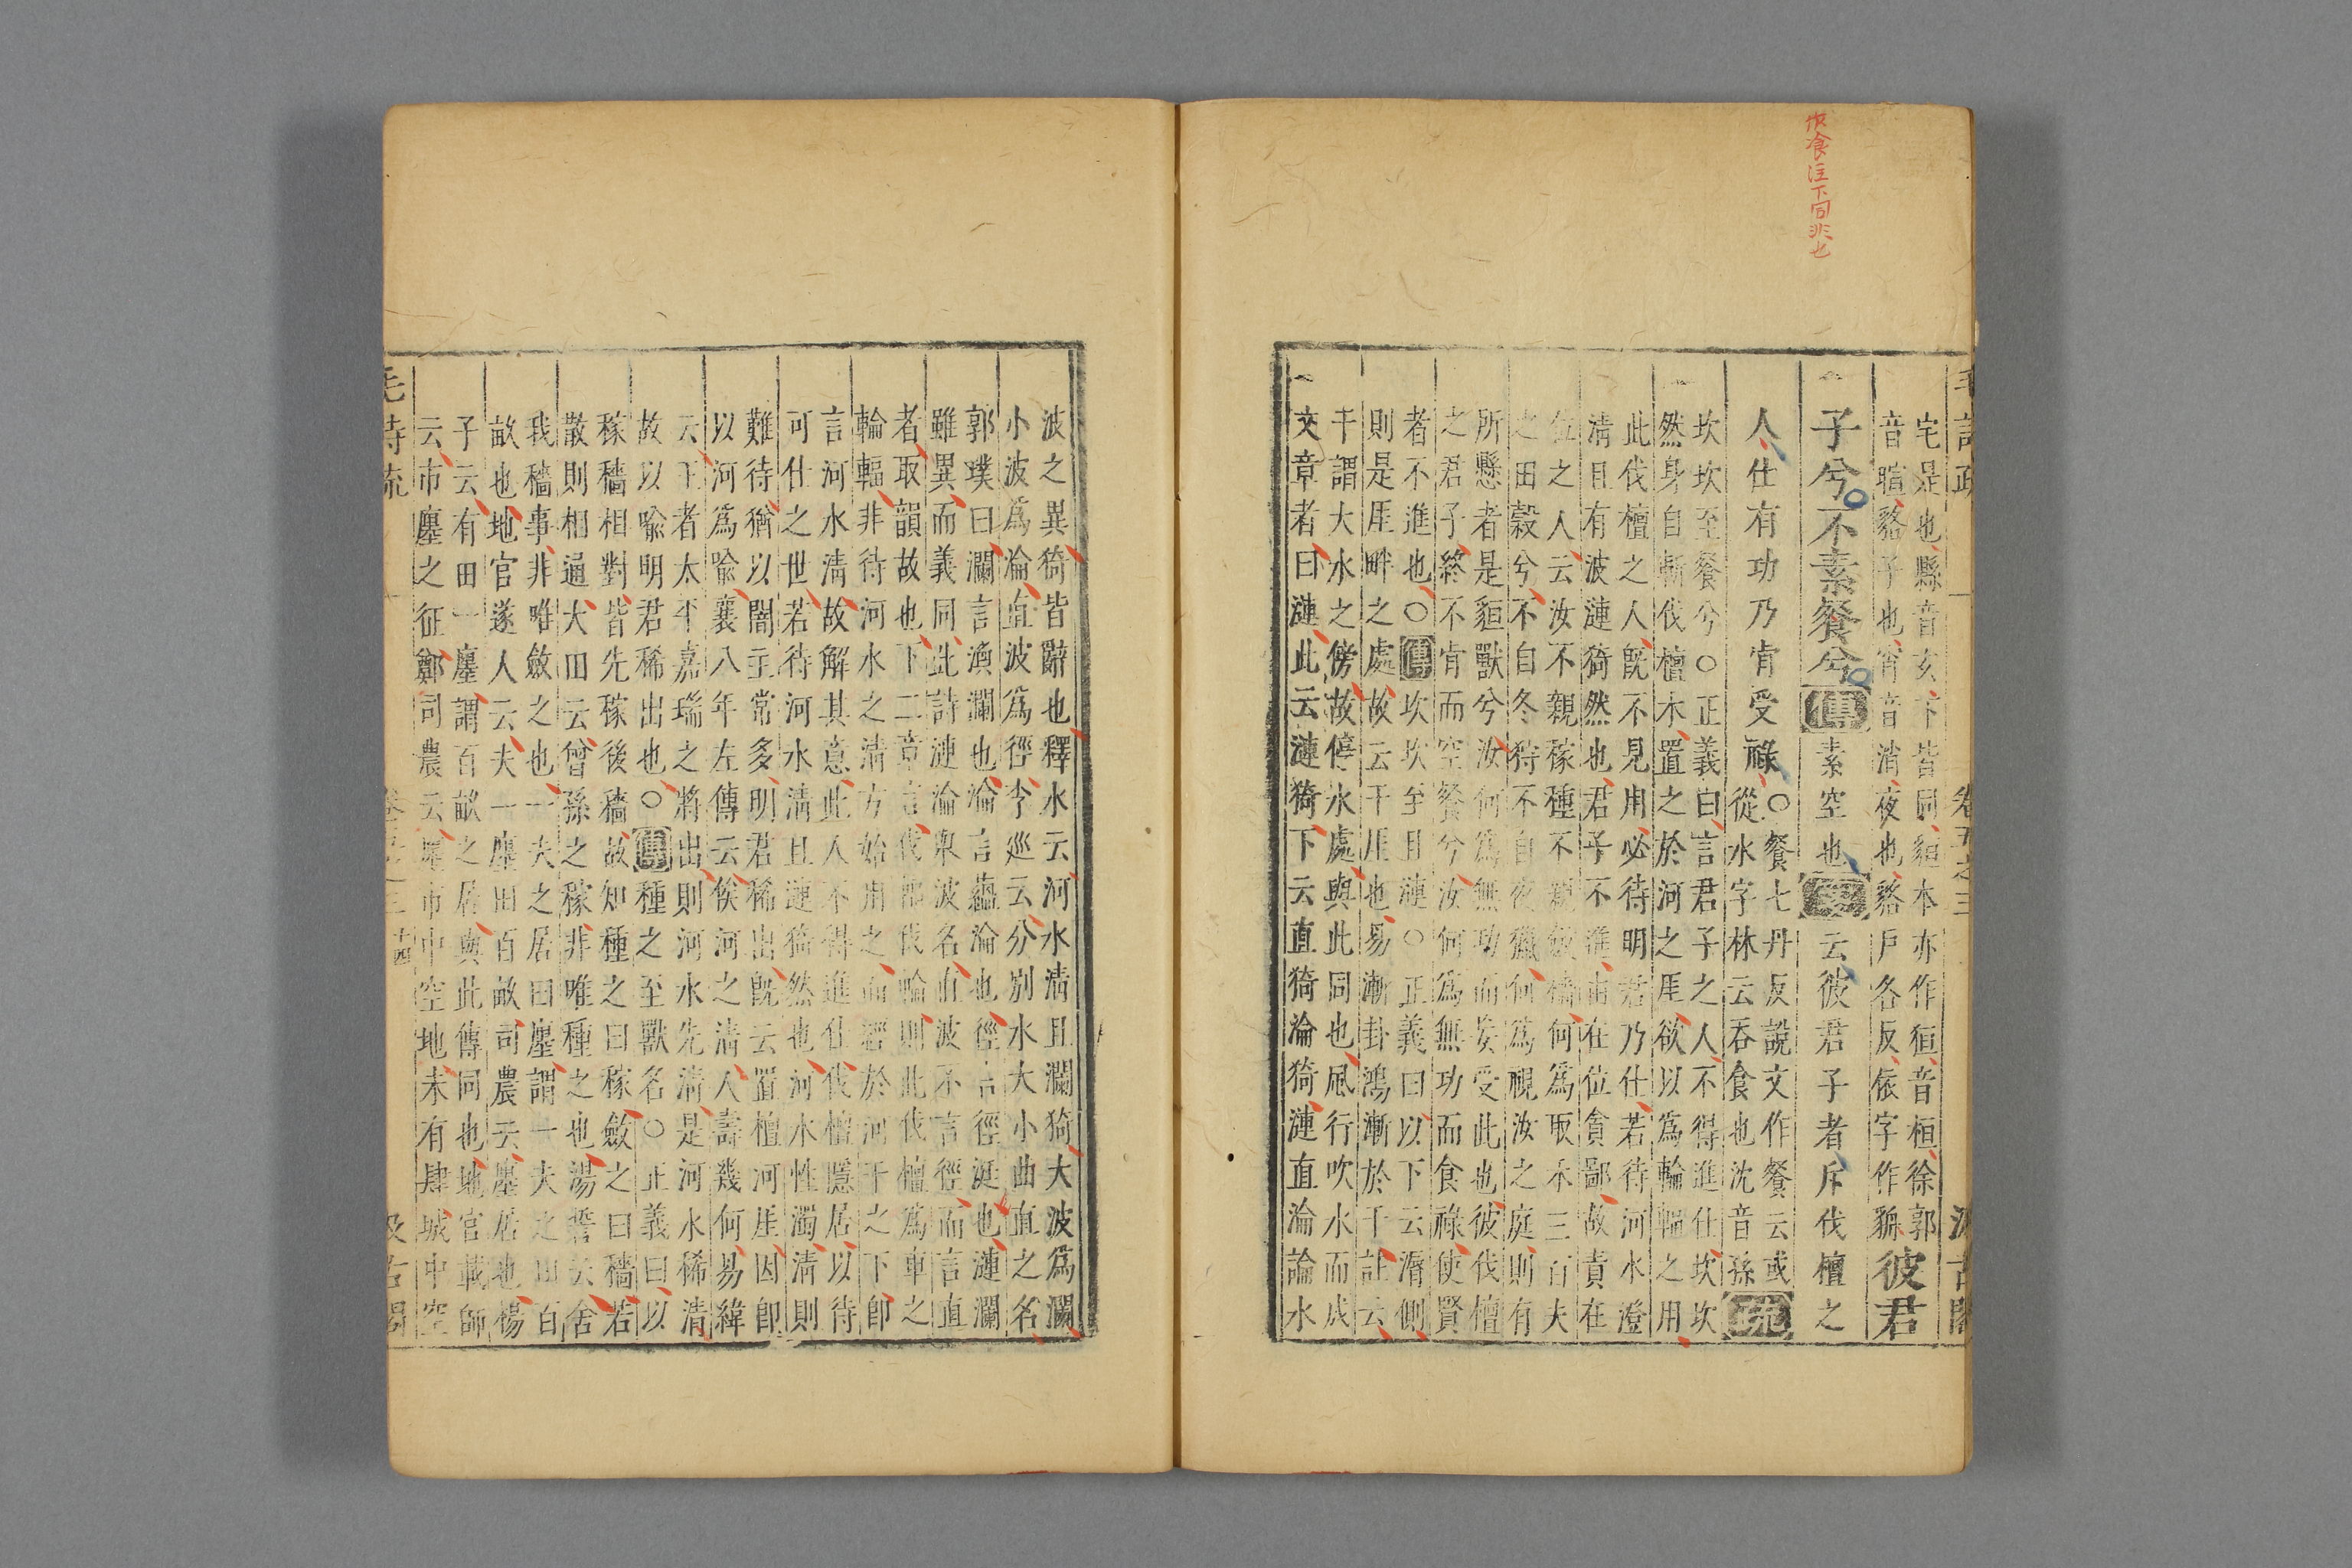 毛詩疏
卷五之三
汲古閣
宅是也縣音玄下皆同貆本亦作狟音桓徐郭
音暄貉子也宵音消夜也貉戶各反依字作貈彼君
子兮不素餐兮傳素空也箋云彼君子者斥伐檀之
人仕有功乃肯受祿○餐七丹反說文作餐云或
從水字林云吞食也沈音孫疏
坎坎至餐兮○正義曰言君子之人不得進仕坎坎
然身自斬伐檀木置之於河之厓欲以爲輪輻之用
此伐檀之人旣不見用必待明君乃仕若待河水澄
清且有波漣猗然也君子不進由在位貪鄙故責在
位之人云汝不親稼種不親斂穡何爲取禾三百夫
之田穀兮不自冬狩不自夜獵何爲視汝之庭則有
所懸者是貆獸兮汝何爲無功而妄受此也彼伐檀
之君子終不肯而空餐兮汝何爲無功而食祿使賢
者不進也○傳坎坎至且漣○正義曰以下云漘側
則是厓畔之處故云干厓也易漸卦鴻漸於干註云
干謂大水之傍故停水處與此同也風行吹水而成
文章者曰漣此云漣猗下云直猗淪猗漣直淪論水
波之異猗皆辭也釋水云河水清且瀾猗大波爲瀾
小波爲淪直波爲徑李巡云分別水大小曲直之名
郭璞曰瀾言渙瀾也淪言蘊淪也徑言徑涏也漣瀾
雖異而義同此詩漣淪舉波名直波不言徑而言直
者取韻故也下二章言伐輻伐輪則此伐檀爲車之
輪輻非待河水之清方始用之而經於河干之下卽
言河水清故解其意此人不得進仕伐檀隱居以待
可仕之世若待河水清且漣猗然也河水性濁清則
難待猶以闇主常多明君稀出旣云置檀河厓因卽
以河爲喻襄八年左傳云俟河之清人壽幾何易緯
云王者太平嘉瑞之將出則河水先清是河水稀清
故以喻明君稀出也○傳種之至獸名○正義曰以
稼穡相對皆先稼後穡故知種之曰稼斂之曰穡若
散則相通大田云曾孫之稼非唯種之也湯誓云舍
我穡事非唯斂之也一夫之居曰廛謂一夫之田百
畝也地官遂人云夫一廛田百畝司農云廛居也楊
子云有田一廛謂百畝之居與此傳同也地官載師
云市廛之征鄭司農云廛市中空地未有肆城中空
毛詩疏
卷五之三
十四
汲古閣